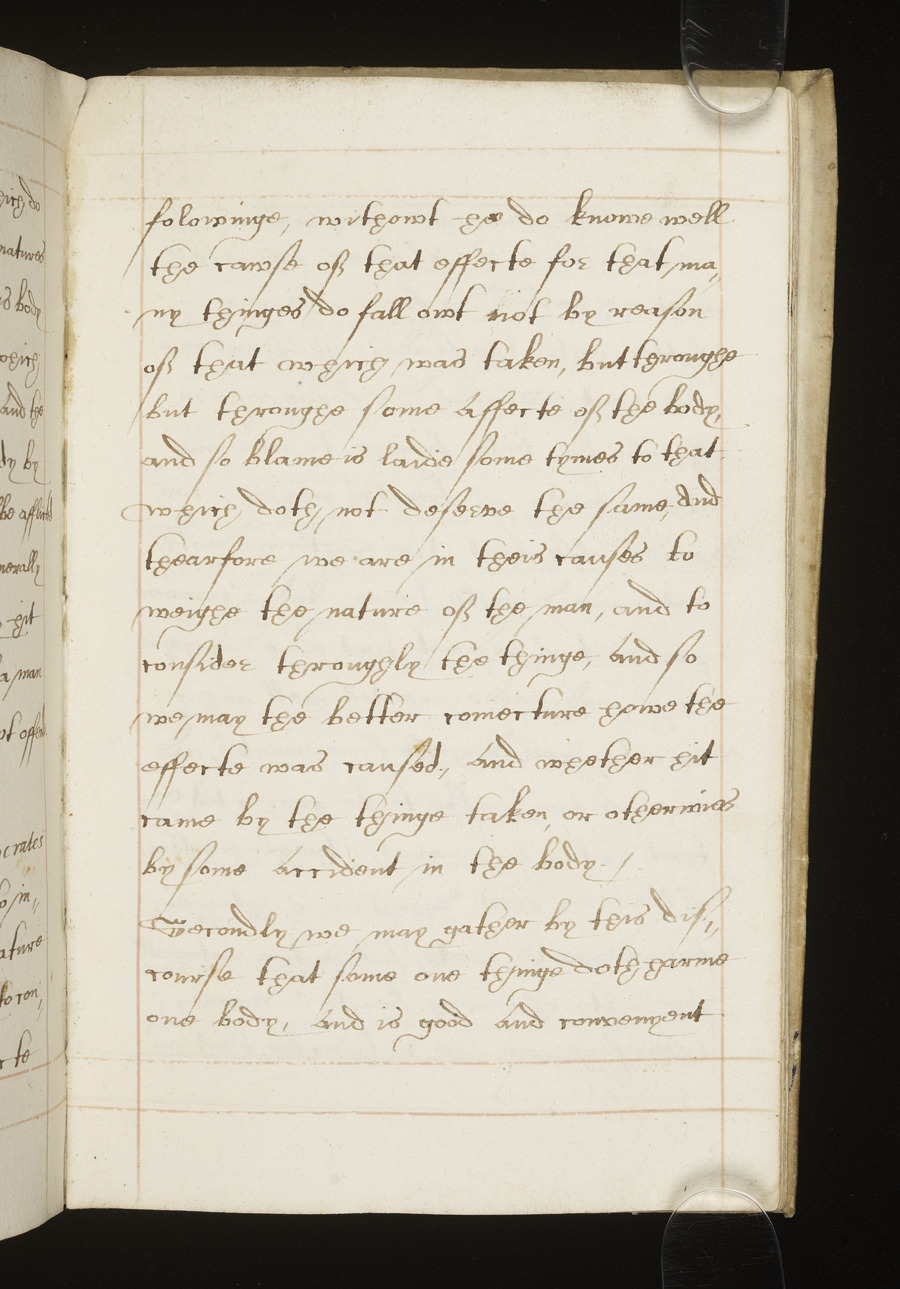 hich do
natures
is body
which
And the
dy by
be afflict
nerally
hit
a man
ot offe
ocrates
so in,,
ature
to con,,
cte
folowinge, withowt he do knowe well
the cawse off that effecte for that ma,,
ny thinges do fall owt not by reason
off that which was taken, but throughe
but throughe some Affecte off the body,
and so blame is laide some tymes to that
which doth not deserve the same, And
thearfore we are in theis causes to
weighe the nature off the man, and to
consider throughly the thinge, And so
we may the better coniecture howe the
effecte was caused., And whether hit
came by the thinge taken, or otherwies
by some Accident in the body. /
Secondly we may gather by this dis,,
course that some one thinge doth harme
one body, And is good And convenyent